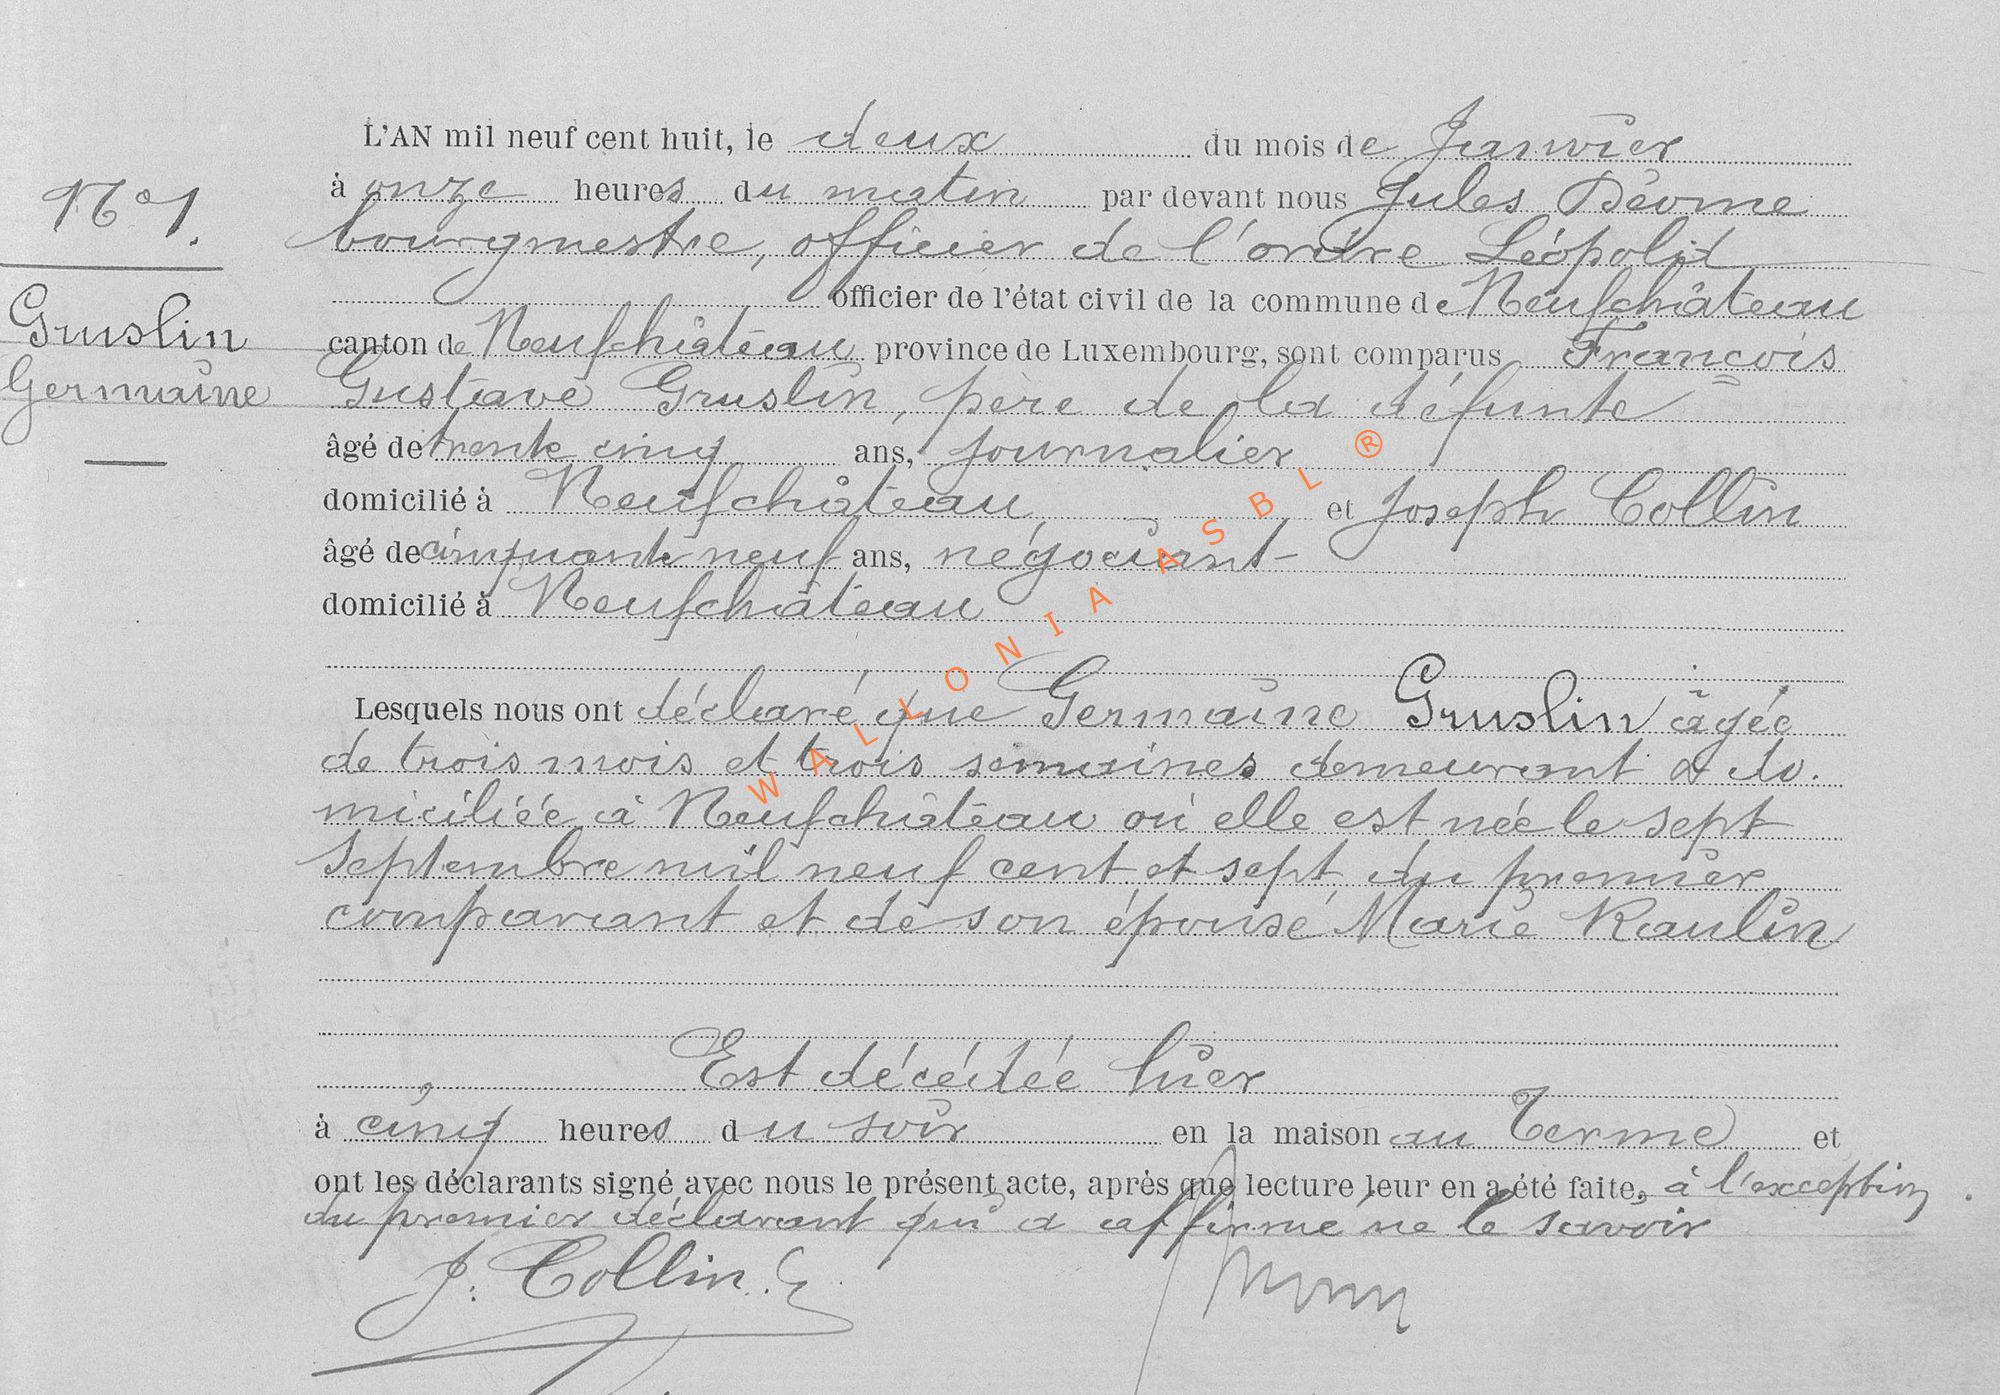 L'AN mil neuf cent huit, le deux du mois de Janvier
N° 1.
à onze heures du matin par devant nous Jules
bourgmestre, officier de l'ordre Léopold
officier de l'état civil de la commune de Neufchâteau
Gruslin
Germaine
canton de Neufchâteau province de Luxembourg, sont comparus François
Gustave Gruslin, père de la défunte
âgé de trente cinq ans, journalier
domicilié à Neufchâteau, et Joseph Collin
âgé de cinquante neuf ans, négociant
domicilié à Neufchâteau
Lesquels nous ont déclaré que Germaine Gruslin âgée
de trois mois et trois semaines demeurant & do.
miciliée à Neufchâteau où elle est née le sept
septembre mil neuf cent et sept du premier
comparant et de son épouse Marie Raulin
Est décédée hier
à cinq heures du soir en la maison au Terme et
ont les déclarants signé avec nous le présent acte, après que lecture leur en a été faite, à l'exception
du premier déclarant qui a affirmé ne le savoir
J. Collin.
WALLONIA ASBL ®